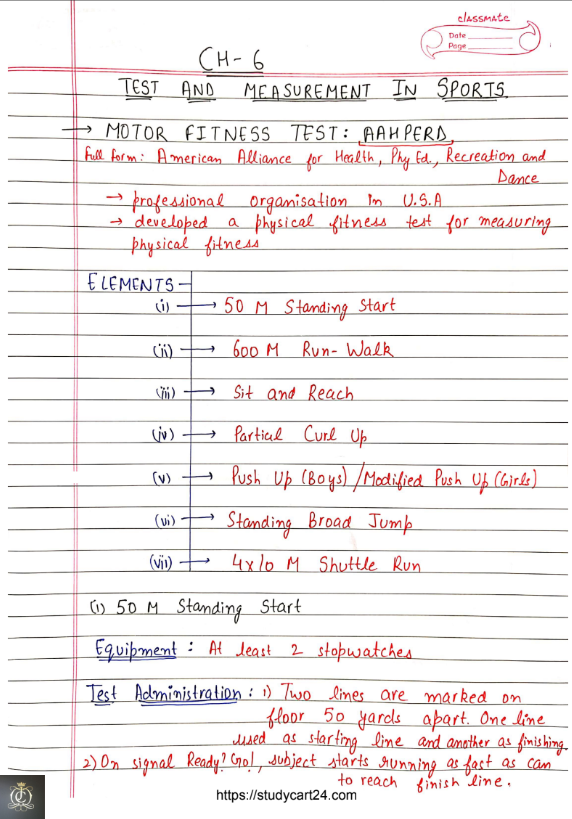 classmate
Date
Page
CH-6
TEST AND MEASUREMENT IN SPORTS
→ MOTOR FITNESS TEST: AAHPERD
Full Form: American Alliance for Health, Phy Ed., Recreation and
Dance
→ professional organisation in U.S.A
→ developed a physical fitness test for measuring
physical fitness
ELEMENTS-
(i) → 50 M Standing Start
(ii) → 600 M Run-Walk
(iii) → Sit and Reach
(iv) → Partial Curl Up
(v) → Push Up (Boys) / Modified Push Up (Girls)
(vi) → Standing Broad Jump
(vii) → 4x10 M Shuttle Run
(i) 50 M Standing Start
Equipment: At least 2 stopwatches
Test Administration: 1) Two lines are marked on
floor 50 yards apart. One line
used as starting line and another as finishing.
2) On signal Ready? Go!, subject starts running as fast as can
to reach finish line.
https://studycart24.com